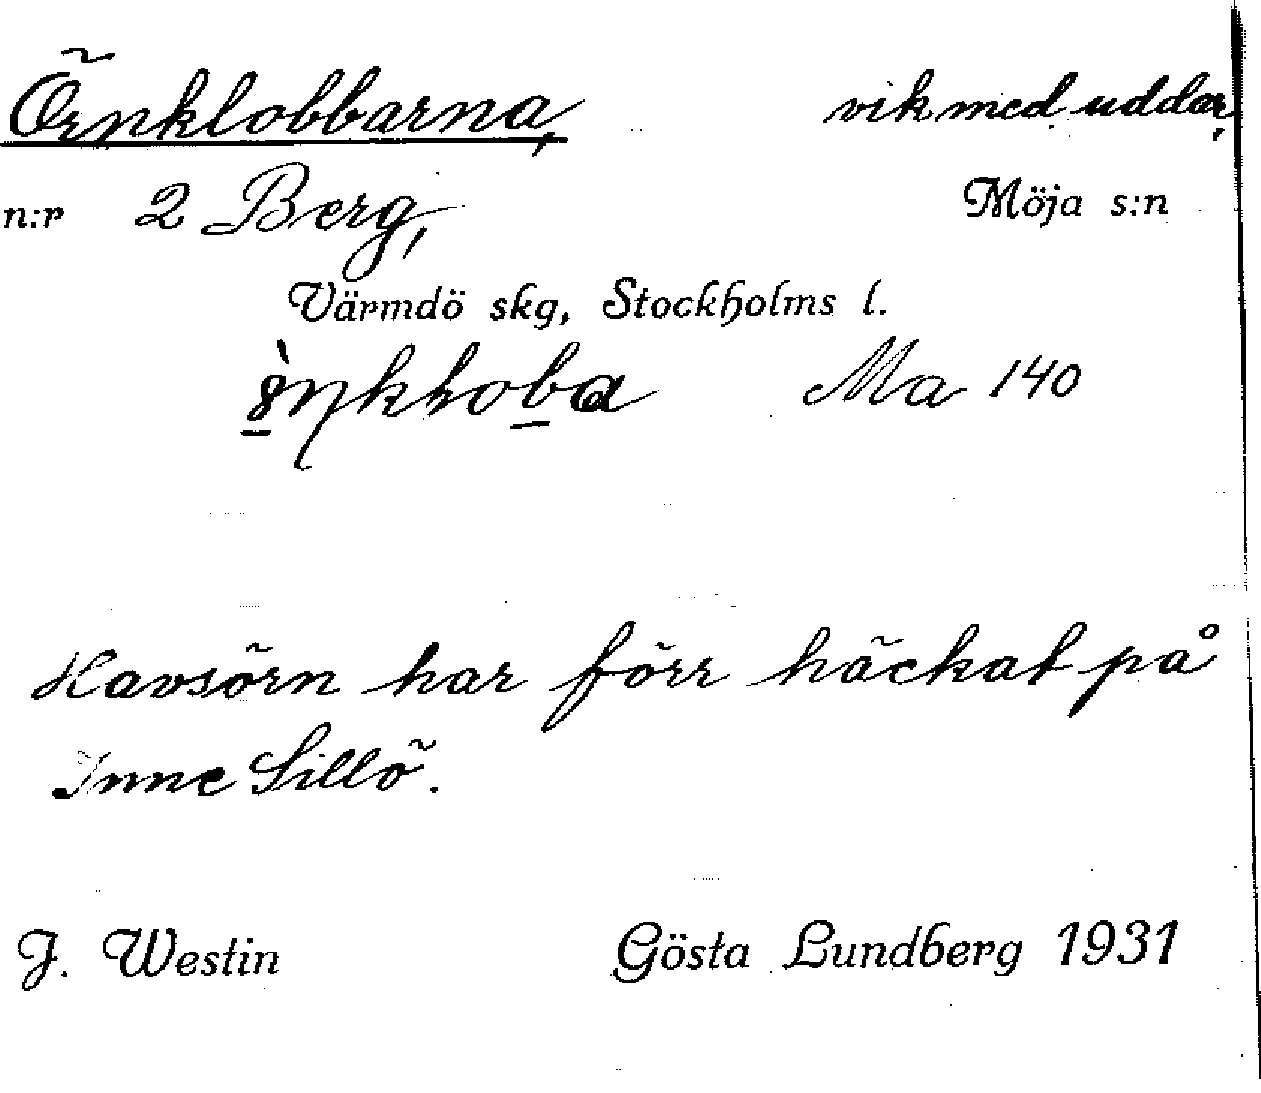 Örnklobbarna, vik med uddar,
n:r 2 Berg, Möja s:n
Värmdö skg, Stockholms l.
Ma 140
Havsörn har förr häckat på
Inne Sillö.
J. Westin Gösta Lundberg 1931